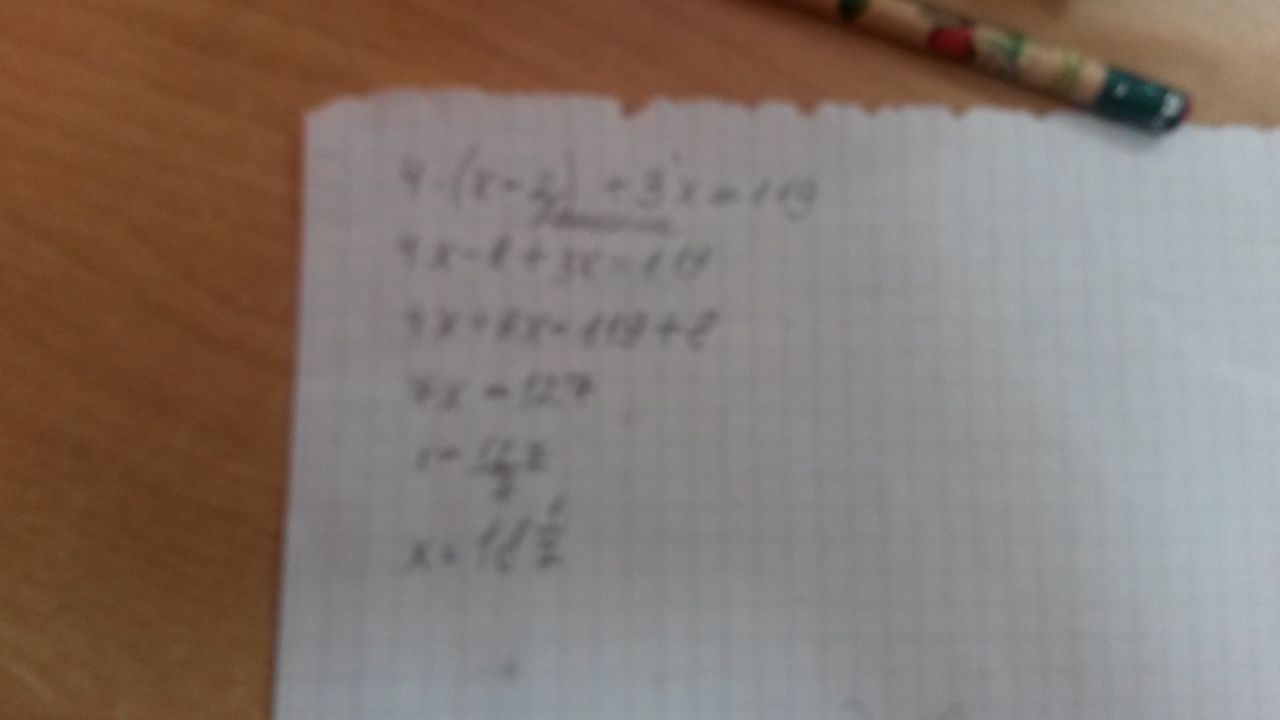 4·(x-2) + 3x = 119
4x-8+3x=119
4x+3x=119+8
7x = 127
x= 127/7
x= 18 1/7